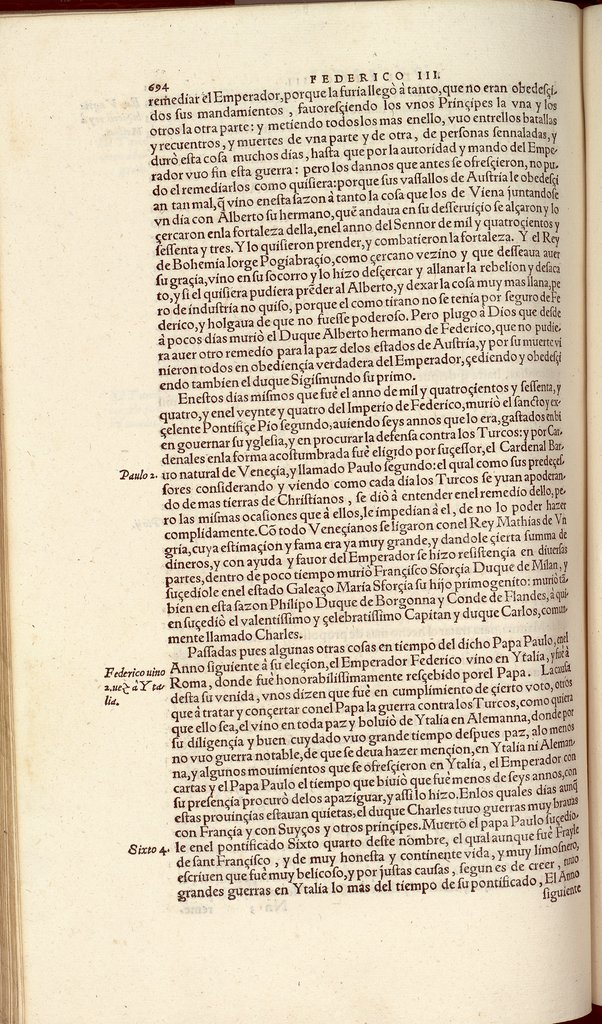 694
FEDERICO III.
remediar el Emperador, porque la furia llegò à tanto, que no eran obedesçi-
dos sus mandamientos, fauoresçiendo los vnos Prinçipes la vna y los
otros la otra parte: y metiendo todos los mas enello, vuo entrellos batallas
y recuentros, y muertes de vna parte y de otra, de personas sennaladas, y
durò esta cosa muchos días, hasta que por la autoridad y mando del Empe-
rador vuo fin esta guerra: pero los dannos que antes se ofresçieron, no pu-
do el remediarlos como quisiera: porque sus vasallos de Austria le obedesçi
an tan mal, q̃ víno enesta sazon à tanto la cosa que los de Viena juntandose
vn día con Alberto su hermano, quē andaua en su desseruiçio se alçaron y lo
çercaron enla fortaleza della, enel anno del Sennor de mil y quatroçientos y
sessenta y tres. Y lo quisieron prender, y combatieron la fortaleza. Y el Rey
de Bohemia Iorge Pogiabraçio, como çercano vezino y que desseaua auer
su graçia, víno en su socorro y lo hizo desçercar y allanar la rebelion y desaca
to, y si el quisiera pudiera prēder al Alberto, y dexar la cosa muy mas llana, pe
ro de industria no quiso, porque el como tirano no se tenia por seguro de Fe
derico, y holgaua de que no fuesse poderoso. Pero plugo à Dios que desde
à pocos días murió el Duque Alberto hermano de Federico, que no pudie-
ra auer otro remedio para la paz delos estados de Austria, y por su muerte vi
nieron todos en obediençia verdadera del Emperador, çediendo y obedesçi
endo tambien el duque Sigismundo su primo.
Enestos días mismos que fuè el anno de mil y quatroçientos y sessenta, y
quatro, y enel veynte y quatro del Imperio de Federico, murió el sancto y ex-
çelente Pontifiçe Pío segundo, auiendo seys annos que lo era, gastados enbi
en gouernar su yglesia, y en procurar la defensa contra los Turcos: y por Car-
denales enla forma acostumbrada fuè eligido por suçessor, el Cardenal Bar-
Paulo 2.
uo natural de Veneçia, y llamado Paulo segundo: el qual como sus predeçes-
sores considerando y viendo como cada día los Turcos se yuan apoderan-
do de mas tierras de Christianos, se diò à entender enel remedio dello, pe-
ro las mismas ocasiones que à ellos, le impedían à el, de no lo poder hazer
complidamente. Cō todo Veneçianos se ligaron conel Rey Mathias de Vn
gría, cuya estimaçion y fama era ya muy grande, y dandole çierta summa de
díneros, y con ayuda y fauor del Emperador se hizo resistençia en diuersas
partes, dentro de poco tiempo murió Françisco Sforçia Duque de Milan, y
suçediole enel estado Galeaço María Sforçia su hijo primogenito: murió tā-
bien en esta sazon Philipo Duque de Borgonna y Conde de Flandes, à qui-
en suçedió el valentissimo y çelebratissimo Capitan y duque Carlos, comun-
mente llamado Charles.
Passadas pues algunas otras cosas en tiempo del dicho Papa Paulo, enel
Federico vino
2. uez à Yta
lia.
Anno siguiente à su eleçion, el Emperador Federico víno en Ytalía, y fuè à
Roma, donde fuè honorabilissimamente resçebido porel Papa. La causa
desta su venida, vnos dizen que fuè en cumplimiento de çierto voto, otros
que à tratar y conçertar conel Papa la guerra contra los Turcos, como quiera
que ello sea, el víno en toda paz y boluiò de Ytalía en Alemanna, donde por
su diligençia y buen cuydado vuo grande tiempo despues paz, alo menos
no vuo guerra notable, de que se deua hazer mençion, en Ytalía ni Aleman-
na, y algunos mouimientos que se ofresçieron en Ytalía, el Emperador con
cartas y el Papa Paulo el tiempo que biuió que fuè menos de seys annos, con
su presençia procurò delos apaziguar, y assi lo hizo. Enlos quales días aunq̃
estas prouinçias estauan quietas, el duque Charles tuuo guerras muy brauas
con Françia y con Suyços y otros prinçipes. Muerto el papa Paulo suçedio-
Sixto 4.
le enel pontificado Sixto quarto deste nombre, el qual aunque fuè Frayle
de sant Françisco, y de muy honesta y continente vida, y muy limosnero,
escriuen que fuè muy belicoso, y por justas causas, segun es de creer, tuuo
grandes guerras en Ytalía lo mas del tiempo de su pontificado, El Anno
siguiente